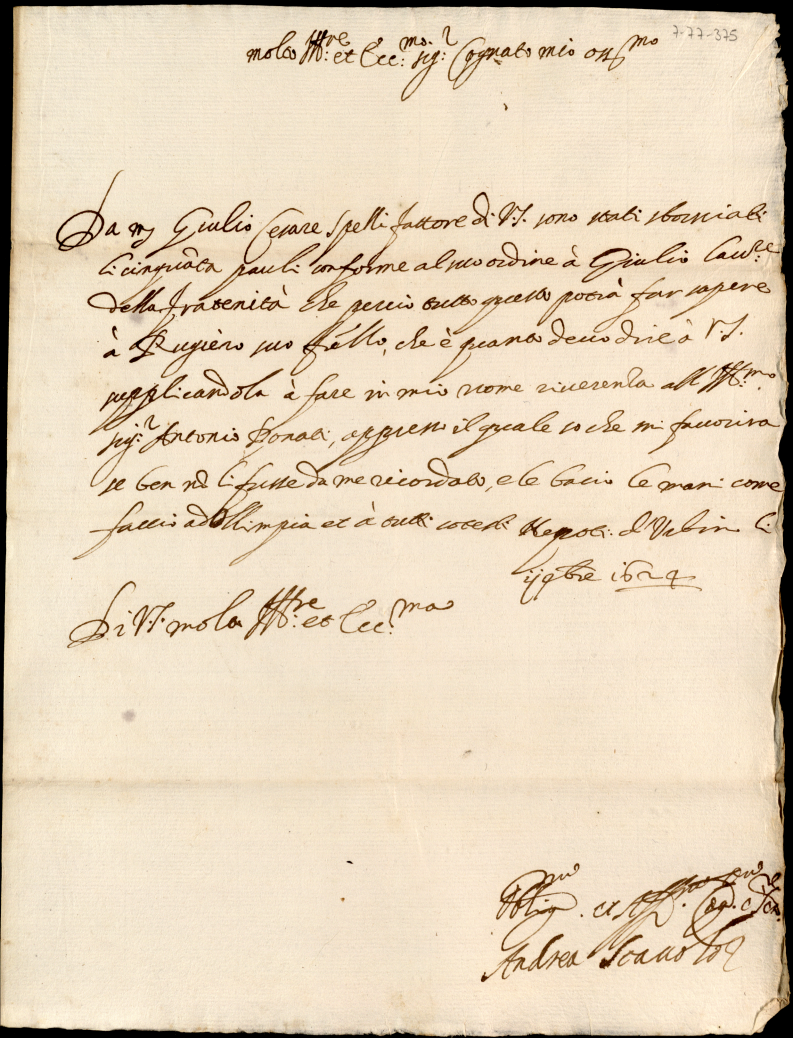 7-77-375
molto Ill:re et Ecc:mo sig:r Cognato mio oss.mo
Da mj Giulio Cesare Spelli fattore di V.S. sono stati sborsiati
li cinquāta pauli conforme al suo ordine à Giulio
della fratenità che percio tutto questo potrà far sapere
à Rugiero suo fr͠ello, che è quanto devo dire à V.S.
supplicandola à fare in mio nome riverenta all' Ill:mo
sig:r Antonio Donati, appresso il quale so che mi favorira
se ben nõ li fusse da me ricordato, e le bacio le mani come
faccio ad Olimpia et à tutti cotesti Nepoti. d'Urbin li
ij 9bre 1624
Di V.S. molto Ill:re et Ecc:ma
Oblig.mo et Aff.mo Cog.
Andrea